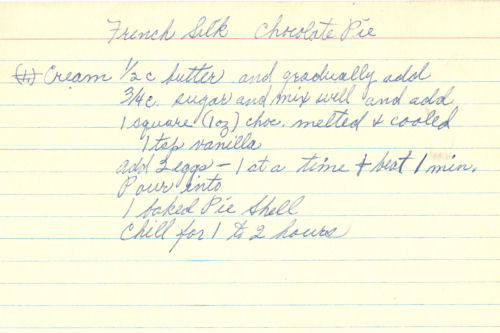 French Silk Chocolate Pie
(1) Cream 1/2 c butter and gradually add
3/4 c. sugar and mix well and add
1 square (1 oz) choc. melted & cooled
1 tsp vanilla
add 2 eggs - 1 at a time & beat 1 min.
Pour into
1 baked Pie Shell
Chill for 1 to 2 hours